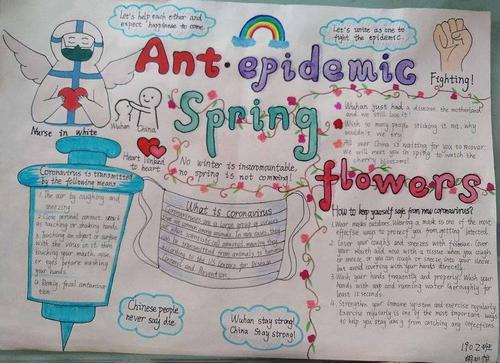 Let's help each other and
expect happiness to come.
Let's unite as one to
fight the epidemic.
Ant-epidemic
Fighting!
Spring
flowers
Nurse in white
Wuhan China
Heart linked
to heart
No winter is insurmountable,
no spring is not coming!
Wuhan just had a disease the motherland
and we still love it!
Wish so many people sticking it out, why
wouldn't we try
All over China is waiting for you to recover.
We will meet you in spring to watch the
cherry blossoms!
Coronavirus is transmitted
by the following means
1. The air by coughing and
sneezing.
2. Close personal contact such
as touching or shaking hands
3. Touching an object or surface
with the virus on it then
touching your mouth, nose,
or eyes before washing
your hands.
4. Rarely, fecal contamina-
tion
What is coronavirus
Coronaviruses are a large group of viruses
that are common among animals. In rare cases, they
are what scientists call zoonotic, meaning they
can be transmitted from animals to humans
according to the US Centers for Disease
Control and Prevention.
How to keep yourself safe from new coronavirus?
1. Wear masks outdoors. Wearing a mask is one of the most
effective ways to protect you from getting infected.
2. Cover your coughs and sneezes with tissues. Cover
your mouth and nose with a tissue when you cough
or sneeze, or you can cough or sneeze into your sleeve
but avoid covering with your hands directly.
3. Wash your hands frequently and properly! Wash your
hands with soap and running water thoroughly for
at least 15 seconds.
4. Strengthen your immune system and exercise regularly.
Exercise regularly is one of the most important ways
to help you stay away from catching any infections
Chinese people
never say die
Wuhan stay strong!
China Stay strong!
1902班